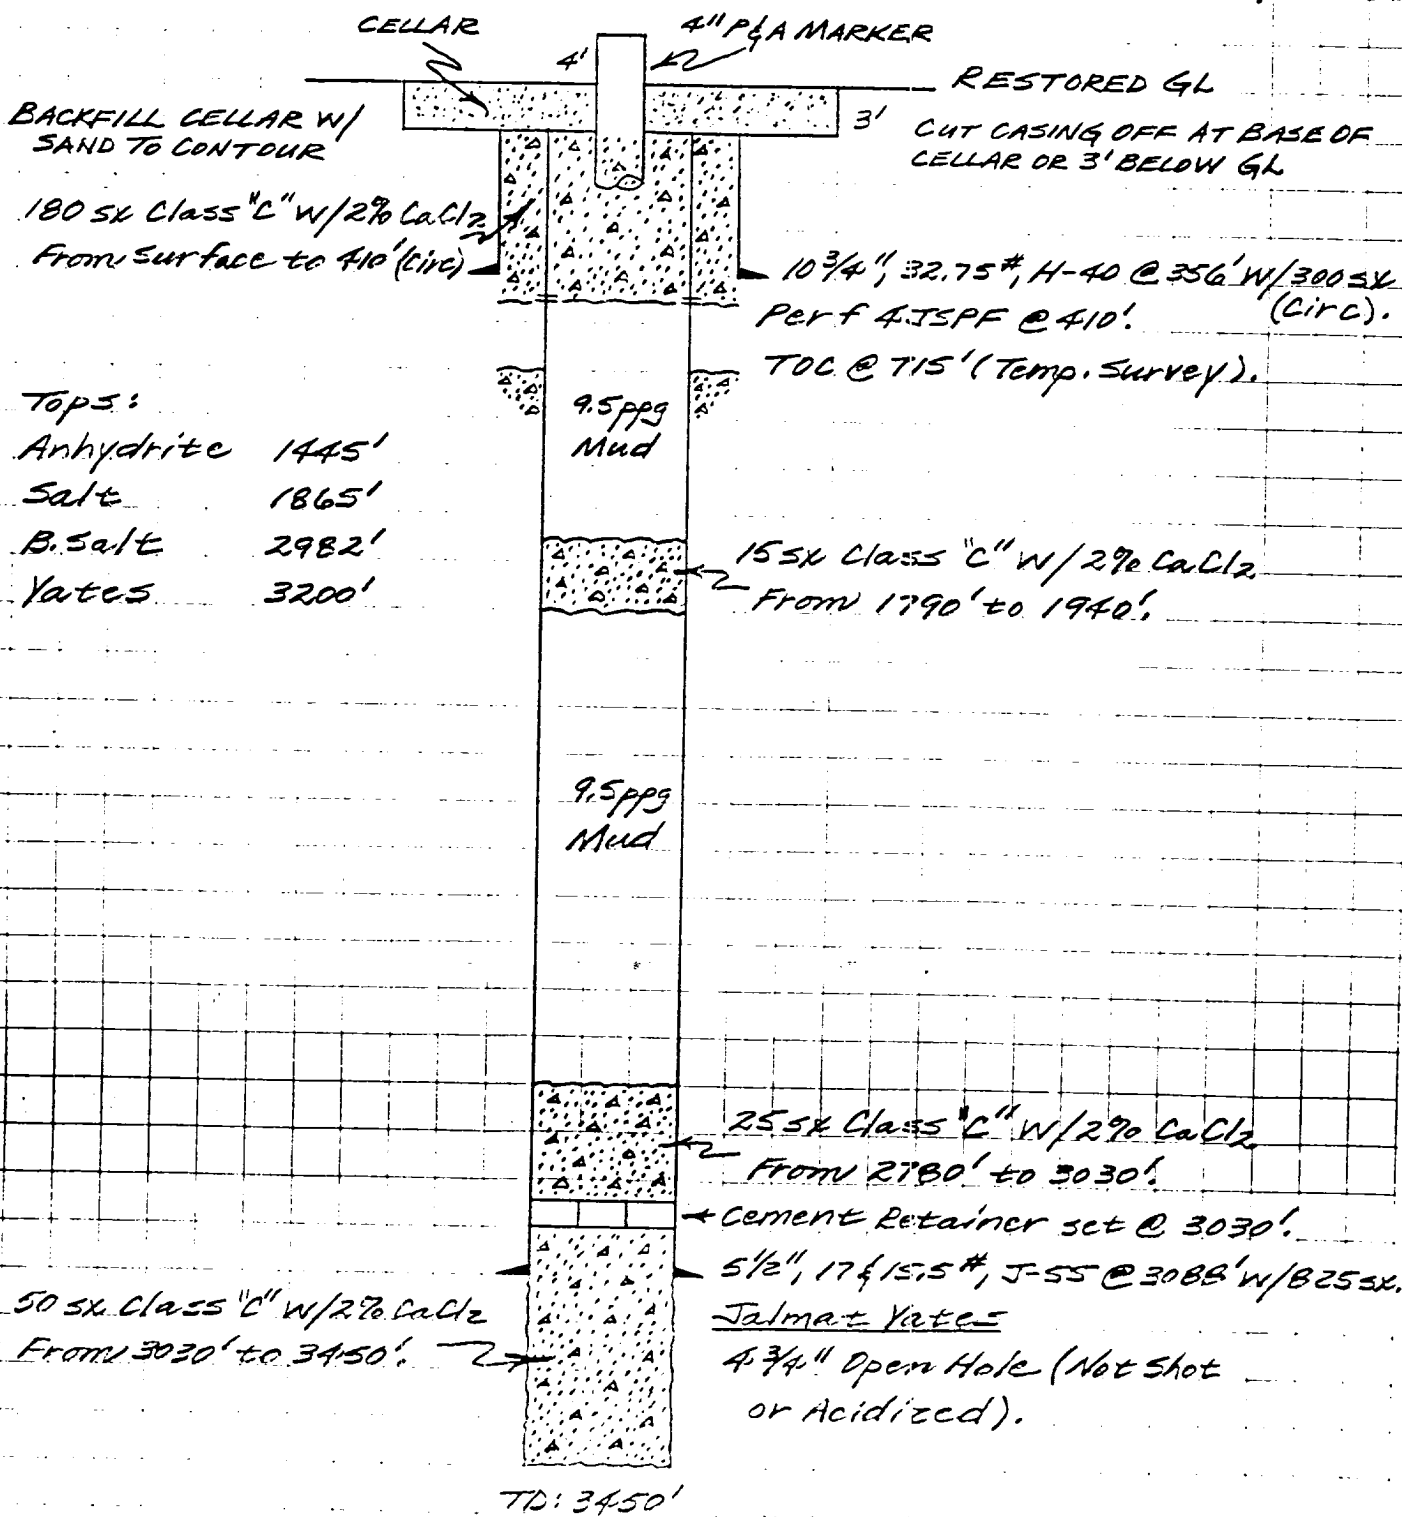 CELLAR
4" P&A MARKER
4'
RESTORED GL
BACKFILL CELLAR W/
SAND TO CONTOUR
3'
CUT CASING OFF AT BASE OF
CELLAR OR 3' BELOW GL
180 sx Class "C" W/2% CaCl2
From Surface to 410' (Circ)
10 3/4", 32.75#, H-40 @ 356' W/300 sx
(Circ).
Perf 4 JSPF @ 410'.
TOC @ 715' (Temp. Survey).
9.5ppg
Mud
Tops:
Anhydrite 1445'
Salt 1865'
B. Salt 2982'
Yates 3200'
15 sx Class "C" W/2% CaCl2
From 1790' to 1940'.
9.5ppg
Mud
25 sx Class "C" W/2% CaCl2
From 2780' to 3030'.
Cement Retainer set @ 3030'.
5 1/2", 17 & 15.5#, J-55 @ 3088' W/825 sx.
50 sx Class "C" W/2% CaCl2
From 3030' to 3450'.
Jalmat Yates
4 3/4" Open Hole (Not Shot
or Acidized).
TD: 3450'